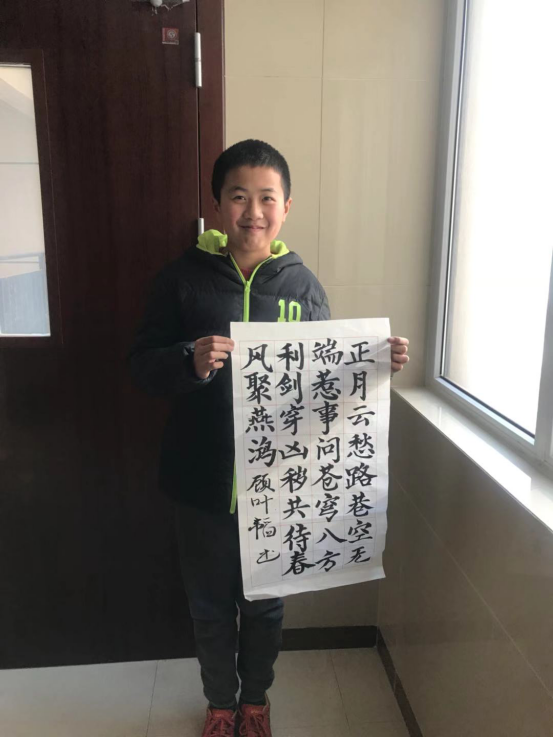 正月云愁路巷空无
端惹事问苍穹八方
利剑穿凶秽共待春
风聚燕鸿
顾叶韬书
10